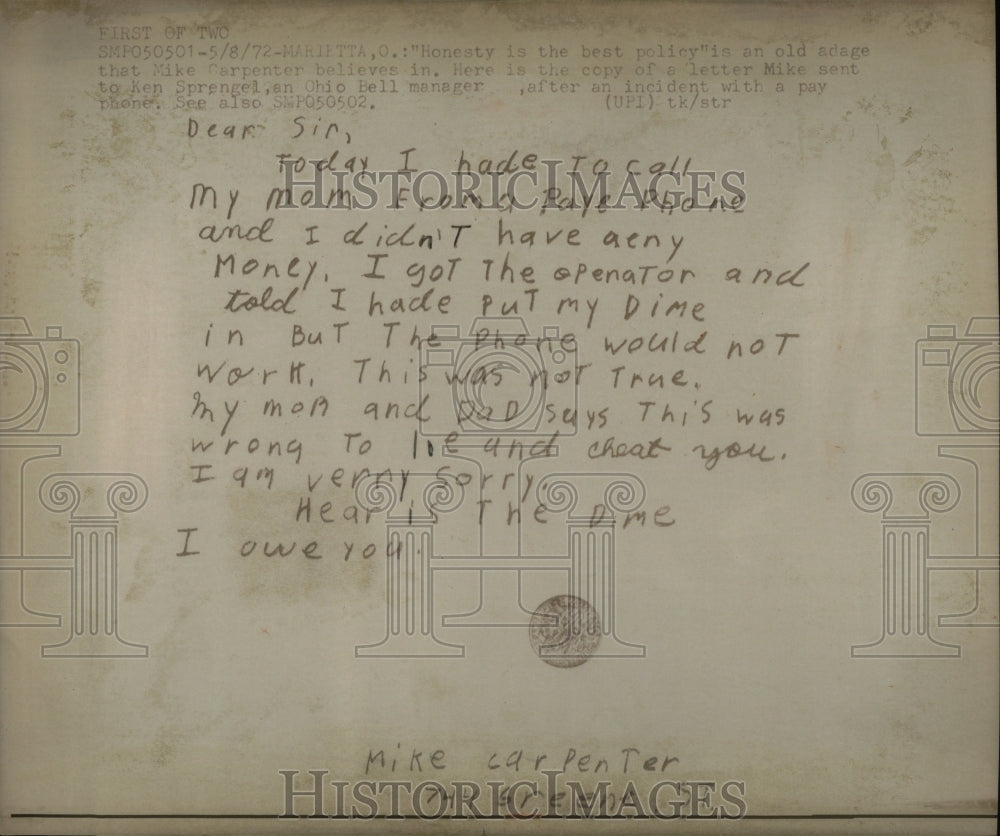 FIRST OF TWO
SMP050501-5/8/72-MARIETTA,O.:"Honesty is the best policy"is an old adage
that Mike Carpenter believes in. Here is the copy of a letter Mike sent
to Ken Sprengel,an Ohio Bell manager ,after an incident with a pay
phone. See also SMP050502. (UPI) tk/str
Dear Sir,
Today I hade To call
My mom From a Paye Phone
and I didn'T have aeny
Money. I got The openaTor and
told I hade puT my Dime
in BuT The Phone would noT
work. This was not True.
My mom and DaD says This was
wrong To lie and cheat you.
I am verry Sorry.
Hear is The Dime
I owe you.
Mike carpenTer
Greene ST.
HISTORICIMAGES
HISTORICIMAGES